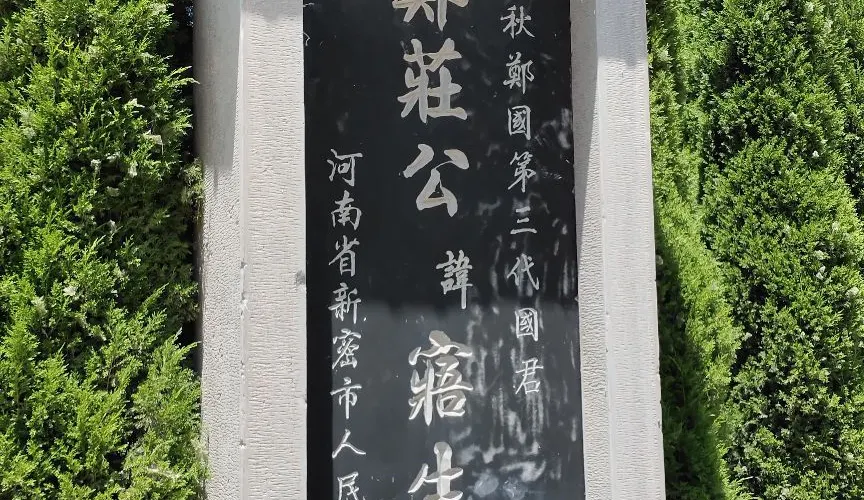 秋鄭國第三代國君
鄭莊公諱寤生
河南省新密市人民